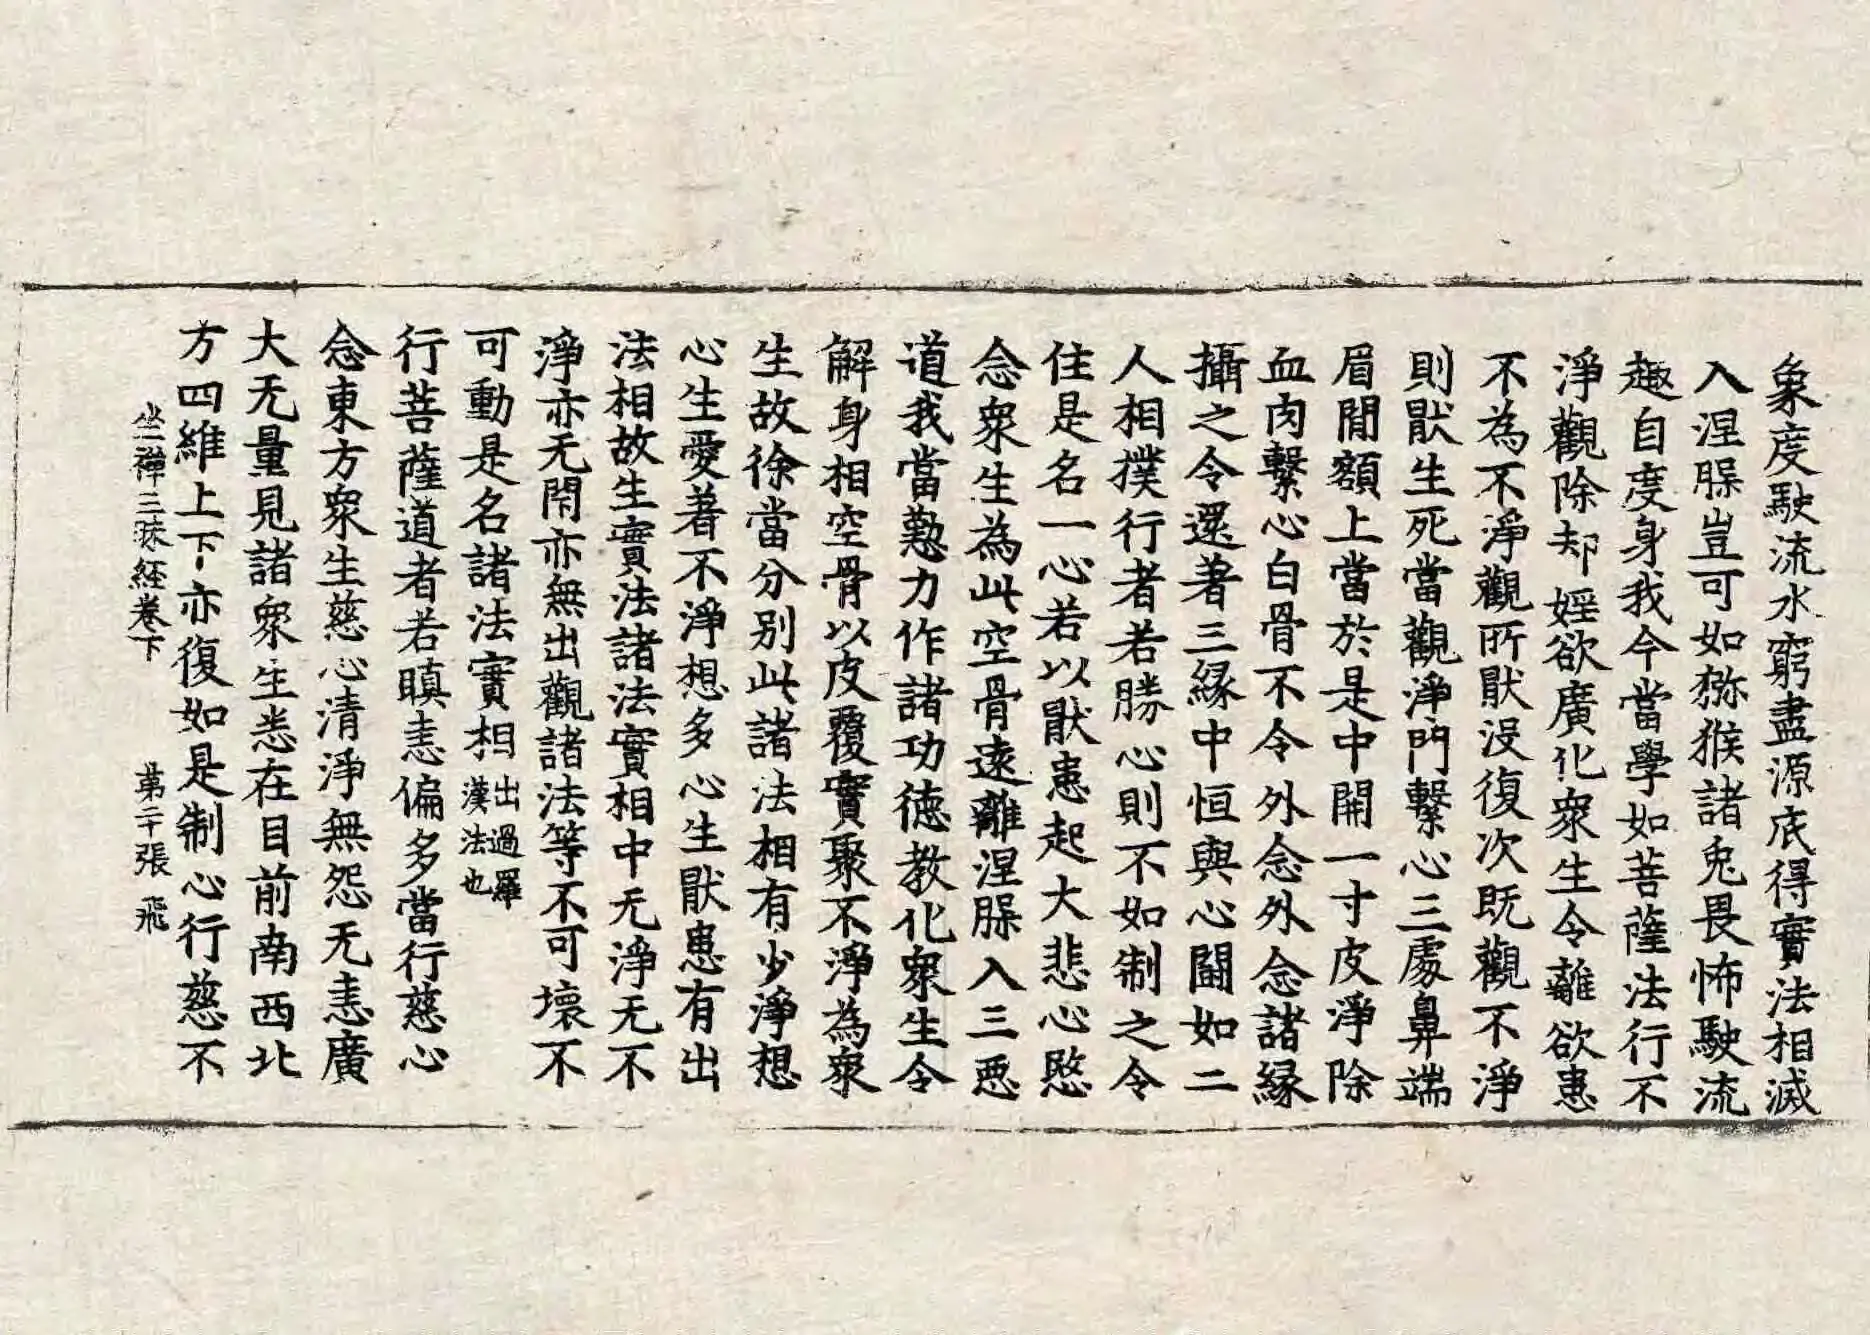 象度駛流水窮盡源底得實法相滅
入涅槃豈可如猕猴諸兎畏怖駛流
趣自度身我今當學如菩薩法行不
淨觀除却婬欲廣化衆生令離欲患
不為不淨觀所猒没復次既觀不淨
則猒生死當觀淨門繫心三處鼻端
眉間額上當於是中開一寸皮淨除
血肉繫心白骨不令外念外念諸縁
攝之令還著三縁中恒與心鬪如二
人相撲行者若勝心則不如制之令
住是名一心若以猒患起大悲心愍
念衆生為此空骨遠離涅槃入三惡
道我當懃力作諸功德教化衆生令
解身相空骨以皮覆實聚不淨為衆
生故徐當分別此諸法相有少淨想
心生愛著不淨想多心生猒患有出
法相故生實法諸法實相中无淨无不
淨亦无閇亦無出觀諸法等不可壞不
可動是名諸法實相出過羅漢法也
行菩薩道者若瞋恚偏多當行慈心
念東方衆生慈心清淨無怨无恚廣
大无量見諸衆生悉在目前南西北
方四維上下亦復如是制心行慈不
坐禪三昧經卷下 第二十張 飛